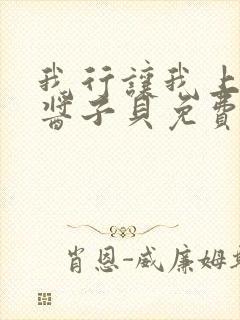 我行讓我上
醬子貝免費
肖恩-威廉姆斯